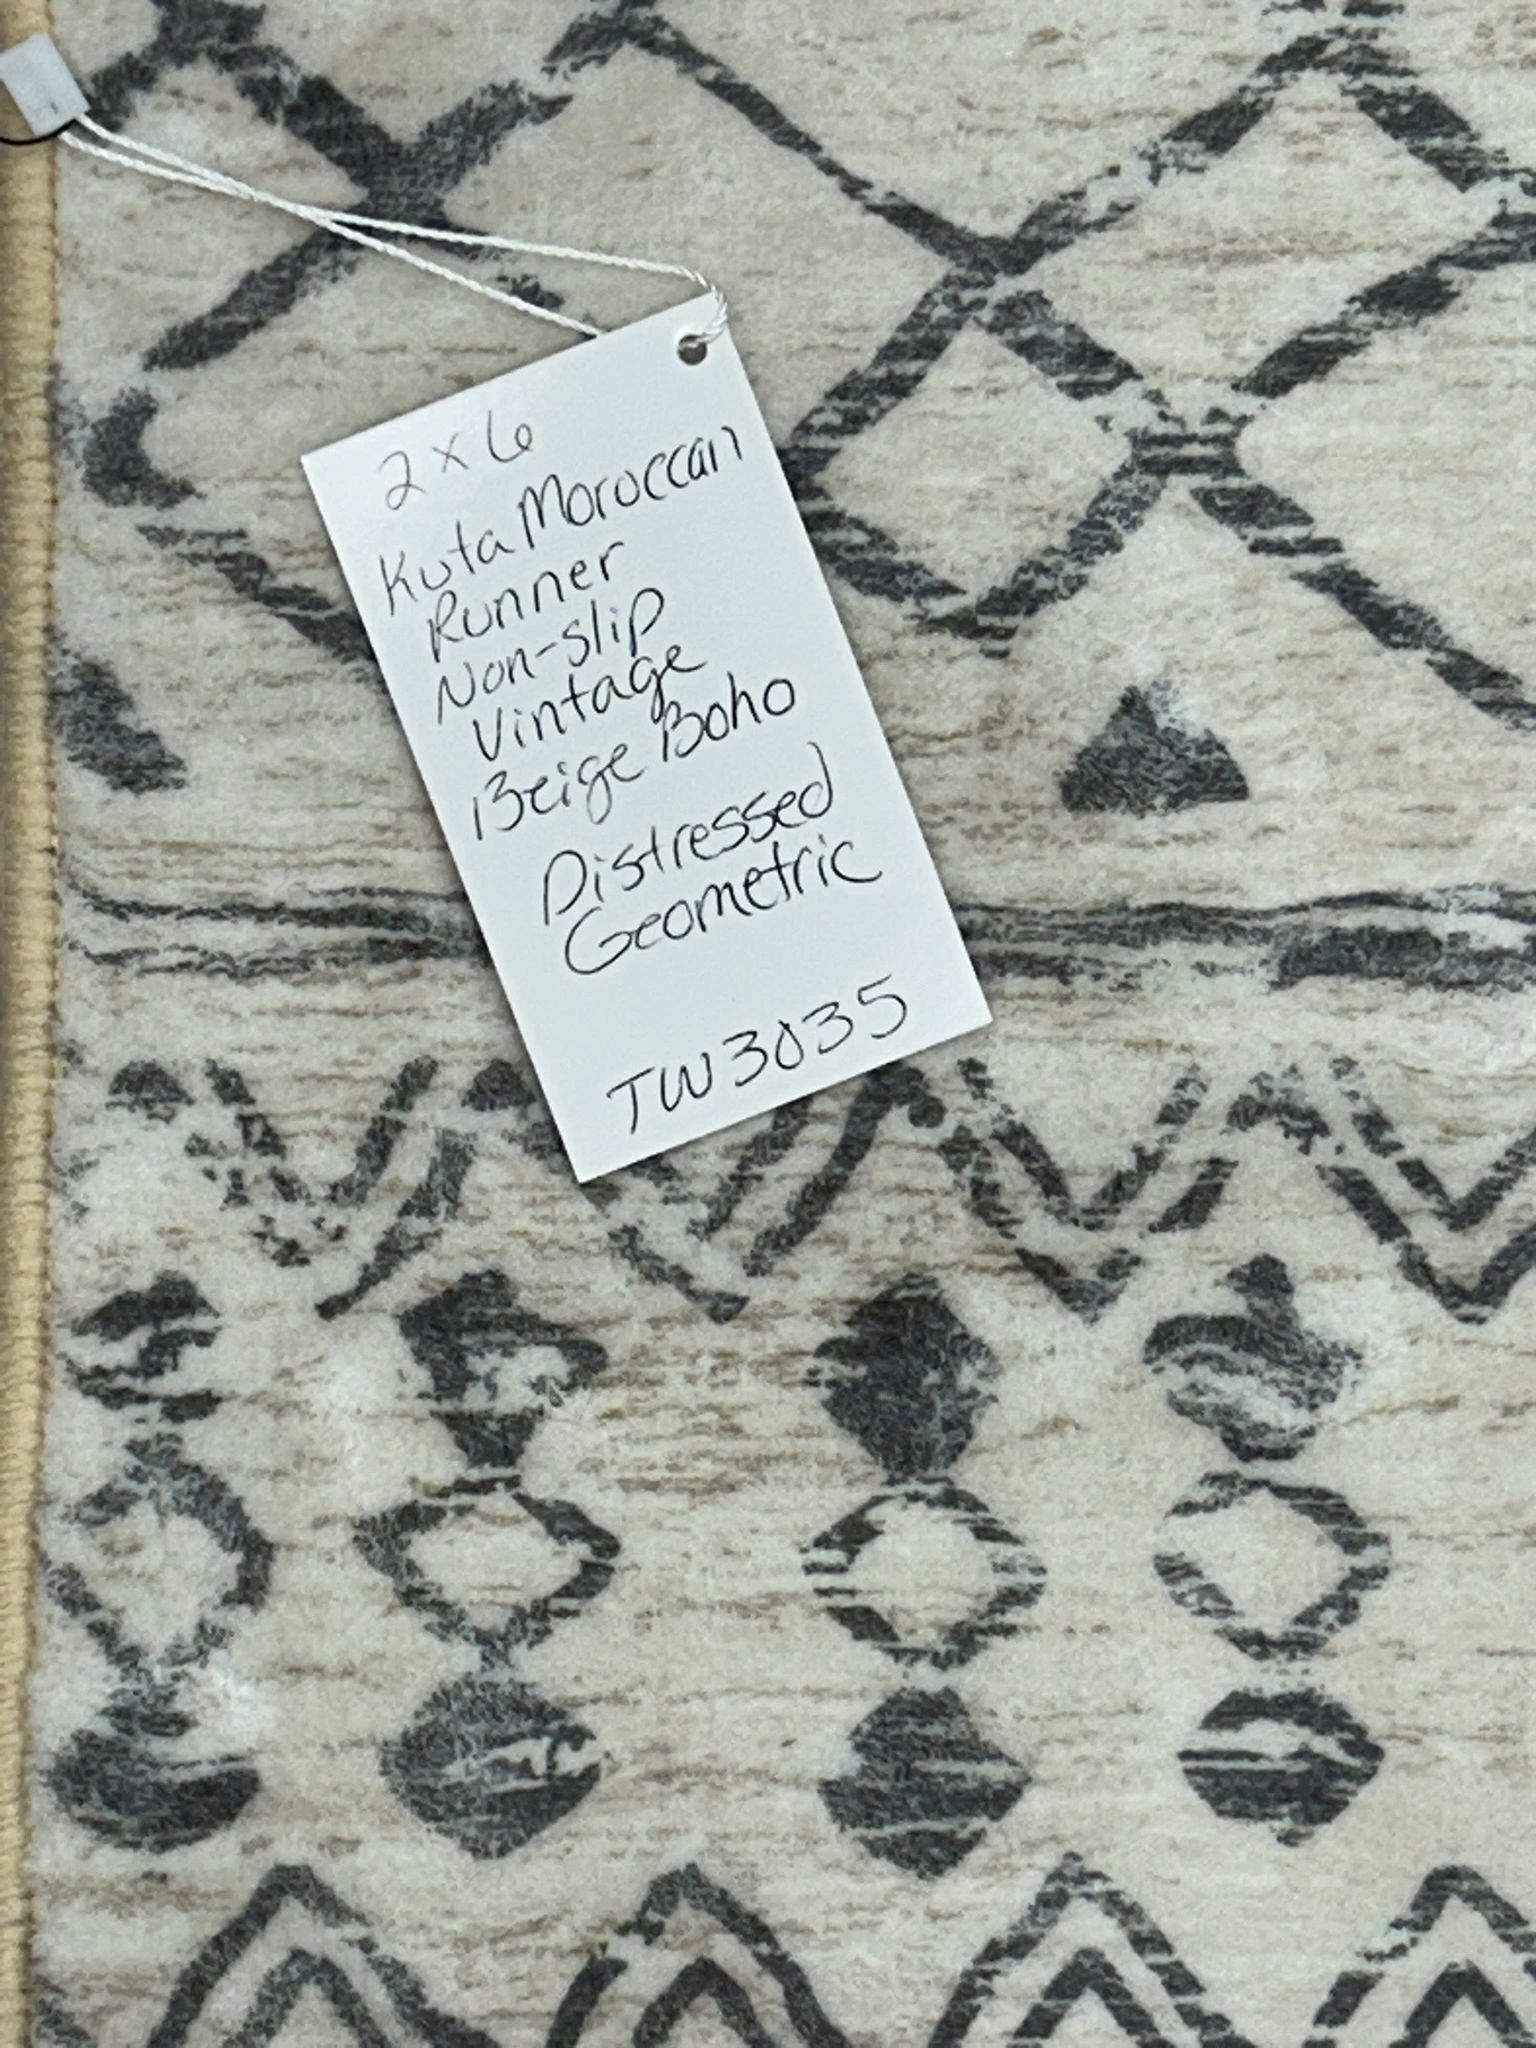 2 x 6
Kuta Moroccan
Runner
Non-Slip
Vintage
Beige Boho
Distressed
Geometric
TW3035